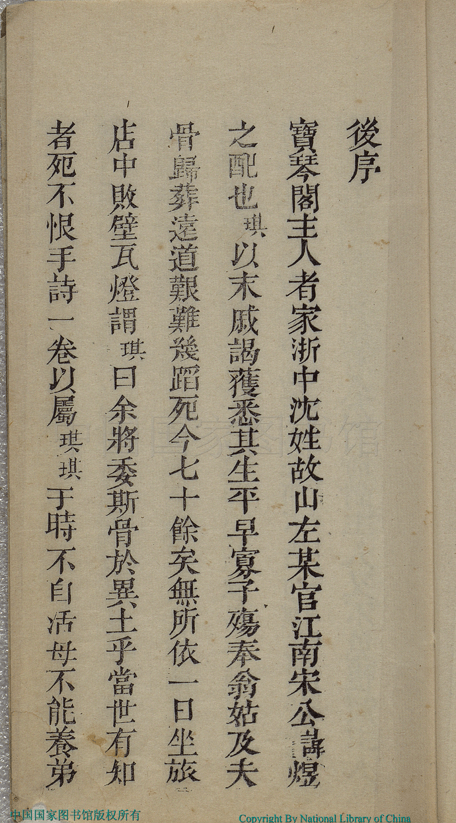 後序
寶琴閣主人者家浙中沈姓故山左某官江南宋公諱煜
之配也琪以末戚謁獲悉其生平早寡子殤奉翁姑及夫
骨歸葬遠道艱難幾蹈死今七十餘矣無所依一日坐旅
店中敗壁瓦燈謂琪曰余將委斯骨於異土乎當世有知
者死不恨手詩一卷以屬琪琪于時不自活母不能養弟
中国国家图书馆版权所有
Copyright By National Library of China